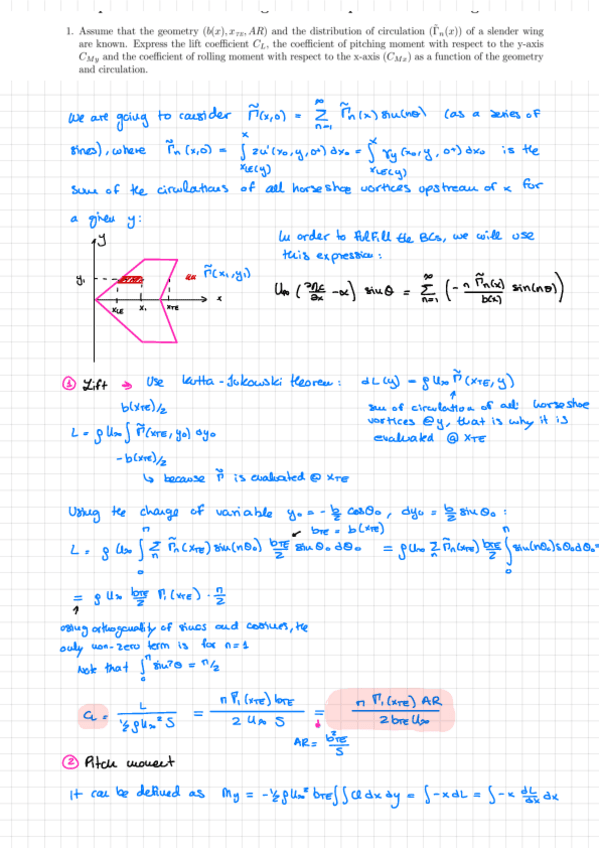 1. Assume that the geometry (b(x), x_TE, AR) and the distribution of circulation (Γ̃_n(x)) of a slender wing
are known. Express the lift coefficient C_L, the coefficient of pitching moment with respect to the y-axis
C_My and the coefficient of rolling moment with respect to the x-axis (C_Mx) as a function of the geometry
and circulation.
We are going to consider Γ̃(x,θ) = Σ_{n=1}^∞ Γ̃_n(x) sin(nθ) (as a series of
sines), where Γ̃_n(x,θ) = ∫_{x_LE(y)}^x 2u'(x₀,y,0⁺) dx₀ = ∫_{x_LE(y)}^x γ_y(x₀,y,0⁺) dx₀ is the
sum of the circulations of all horseshoe vortices upstream of x for
a given y:
y
y₁
x_LE x₁ x_TE x
Γ̃(x₁,y₁)
In order to fulfill the BCs, we will use
this expression:
U∞ (∂η_c/∂x - α) sinθ = Σ_{n=1}^∞ (- n Γ̃_n(x)/b(x) sin(nθ))
① Lift → Use Kutta-Jukowski theorem: dL(y) = ρ U∞ Γ̃(x_TE, y)
sum of circulation of all horseshoe
vortices @y, that is why it is
evaluated @ x_TE
L = ρ U∞ ∫_{-b(x_TE)/2}^{b(x_TE)/2} Γ̃(x_TE, y₀) dy₀
↳ because Γ̃ is evaluated @ x_TE
Using the change of variable y₀ = - b/2 cosθ₀, dy₀ = b/2 sinθ₀ :
b_TE = b(x_TE)
L = ρ U∞ ∫_0^π Σ Γ̃_n(x_TE) sin(nθ₀) b_TE/2 sinθ₀ dθ₀ = ρ U∞ Σ Γ̃_n(x_TE) b_TE/2 ∫_0^π sin(nθ₀) sθ₀ dθ₀ =
= ρ U∞ b_TE/2 Γ̃₁(x_TE) · π/2
using orthogonality of sines and cosines, the
only non-zero term is for n=1
Note that ∫_0^π sin²θ = π/2
C_L = L / (½ ρ U∞² S) = π Γ̃₁(x_TE) b_TE / (2 U∞ S) = π Γ̃₁(x_TE) AR / (2 b_TE U∞)
AR = b²_TE / S
② Pitch moment
It can be defined as My = -½ ρ U∞² b_TE ∫∫ Cl dx dy = ∫ -x dL = ∫ -x dL/dx dx